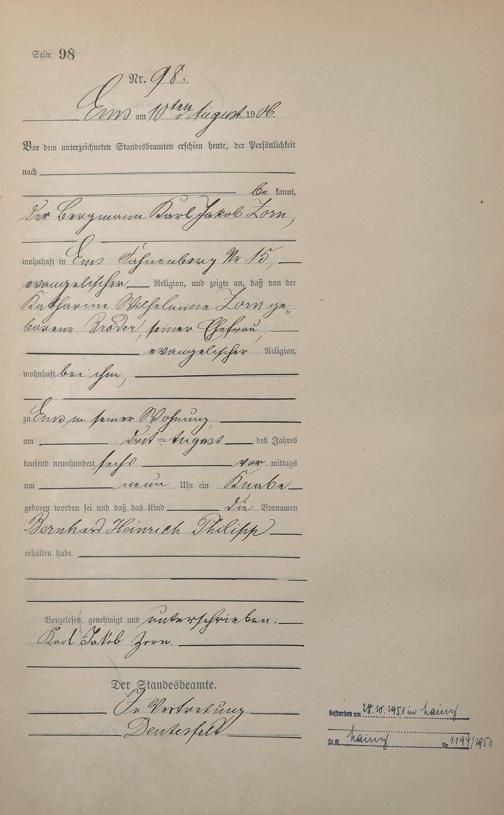 Seite 98
Nr. 98.
Ems am 10ten August 1906.
Vor dem unterzeichneten Standesbeamten erschien heute, der Persönlichkeit
nach
be kannt,
der Bergmann Karl Jakob Zorn,
wohnhaft in Ems Nr 15,
evangelischer Religion, und zeigte an, daß von der
Katharine Wilhelmine Zorn ge-
borene seiner Ehefrau,
evangelischer Religion,
wohnhaft bei ihm,
zu Ems in seiner Wohnung
am August des Jahres
tausend neunhundert sechs vor mittags
um neun Uhr ein Knabe
geboren worden sei und daß das Kind die Vornamen
Bernhard Heinrich Philipp
erhalten habe.
Vorgelesen, genehmigt und unterschrieben.
Karl Jakob Zorn.
Der Standesbeamte.
In Vertretung
Gestorben am 28.10.1951 in Mainz
St.A. Mainz Nr. 1194/1951